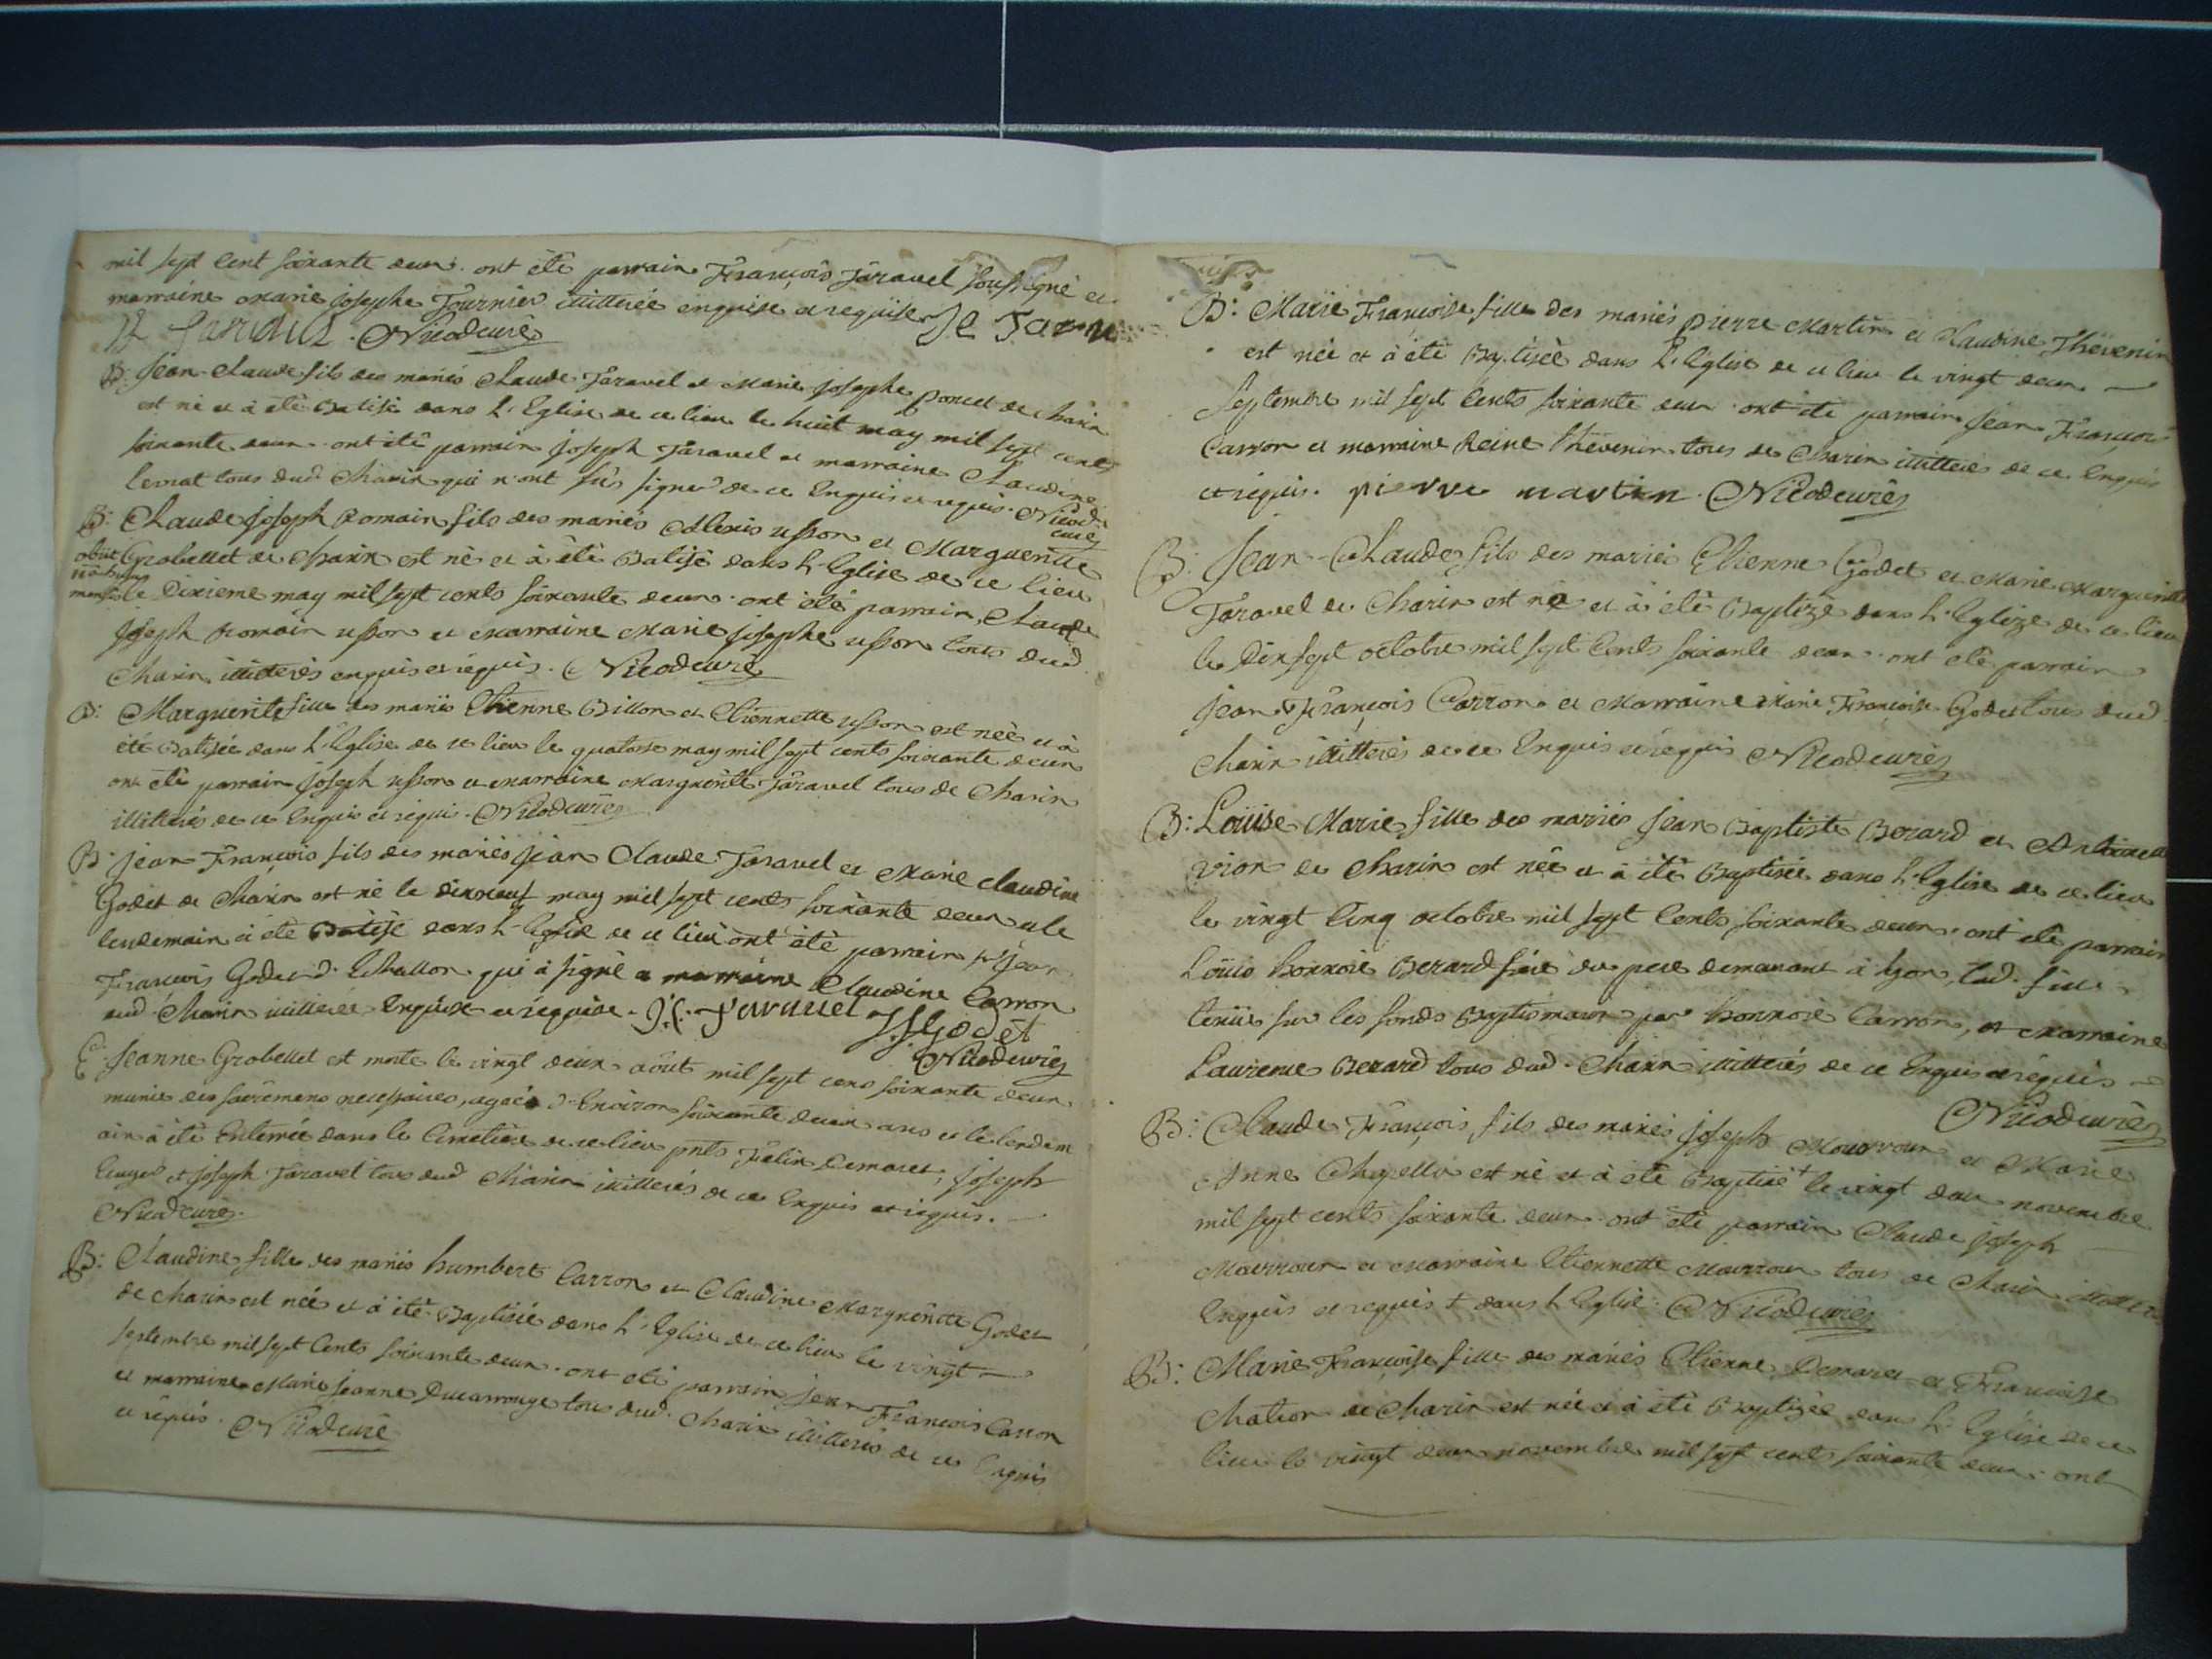 mil sept cent soixante deux. ont été parrain François Taravel soussigné et
marraine Marie josephe Tournier illitterée enquise et requise
Nicod curé
B: Jean-Claude fils des mariés Claude Taravel et Marie josephe poncet de Charix
est né et à été Batisé dans L'Eglise de ce lieu le huit may mil sept cents
soixante deux. ont été parrain joseph Taravel et marraine Claudine
Lemat tous dud. Charix qui n'ont sús signer de ce Enquis et requis. Nicod
curé
B: Claude joseph Romain fils des mariés Alexis usson et Marguerite
obiit Grobellet de Charix est né et à été Batisé dans L'Eglise de ce lieu
le Dixieme may mil sept cents soixante deux. ont été parrain, Claude
joseph Romain usson et Marraine Marie josephe usson tous dud.
Charix illitterés enquis et requis. Nicod curé
B: Marguerite fille des mariés Etienne Billon et Etiennette usson est neé et à
été Batisée dans L'Eglise de ce lieu le quatorse may mil sept cents soixante deux
ont été parrain joseph usson et marraine Marguerite Taravel tous de Charix
illitterés de ce Enquis et requis. Nicod curé
B: jean François fils des mariés jean Claude Taravel et Marie claudine
Godet de Charix est né le dixneuf may mil sept cents soixante deux et le
lendemain à été Batisé dans L'Eglise de ce lieu ont été parrain Sr jean
François Godet d'Echallon qui à signé et marraine Claudine Carron
dud. Charix illiterée Enquise et requise. J.C. Taravel
JfGodet
Nicod curé
Jeanne Grobellet est morte le vingt deux aôut mil sept cens soixante deux
munie des sacremens necessaires, agée d'Environ soixante deux ans et le lendem
ain à été Enterrée dans le Cimetiere de ce lieu pnts Felix Demaret, joseph
et joseph Taravel tous dud Charix illitterés de ce Enquis et requis.
Nicod curé.
B: Claudine fille des mariés humbert Carron et Claudine Marguerite Godet
de Charix est née et à été Baptisée dans L'Eglise de ce lieu le vingt
septembre mil sept Cents soixante deux. ont été parrain jean François Carron
et marraine Marie jeanne Ducarrouge tous dud. Charix illitterés de ce Enquis
et requis. Nicod curé
B: Marie Françoise fille des mariés pierre Martin et Claudine Thévenin
est née et à été Baptisée dans L'Eglise de ce lieu le vingt deux
Septembre mil sept Cents soixante deux ont été parrain jean François
Carron et marraine Reine Thevenin tous de Charix illitterés de ce Enquis
et requis. pierre martin. Nicod curé
B: Jean-Claude fils des mariés Etienne Godet et Marie Marguerite
Taravel de Charix est né et à été Baptizé dans L'Eglize de ce lieu
le Dix sept octobre mil sept Cents soixante deux. ont été parrain
jean François Carron et Marraine Marie Françoise Godet tous dud.
Charix illitterés de ce Enquis et requis Nicod curé
B: Loüise Marie fille des mariés jean Baptiste Berard et Antoinette
vion de Charix est née et à été Baptisée dans L'Eglise de ce lieu
le vingt Cinq octobre mil sept Cents soixante deux. ont été parrain
Loüis honnoré Berard frére du pere demeurant à lyon, lad. fille
tenüe sur les fonds Baptismaux par honnoré Carron, et Marraine
Laurence Berard tous dud. Charix illitterés de ce Enquis et requis
Nicod curé
B: Claude François fils des mariés joseph Mourroux et Marie
Anne Chapellu est né et à été Baptisé + le vingt deux novembre
mil sept cents soixante deux. ont été parrain Claude joseph
Mourroux et marraine Etiennette Mourroux tous de Charix
Enquis et requis + dans L'Eglise Nicod curé
B: Marie Françoise fille des mariés Etienne Demaret et Françoise
Chatron de Charix est née et à été Baptizée dans L'Eglise de ce
lieu le vingt deux novembre mil sept cents soixante deux. ont